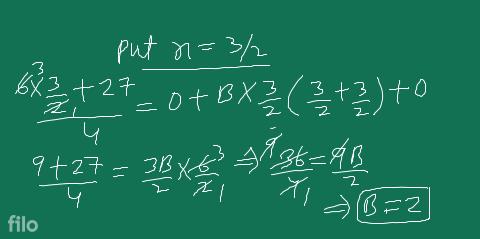 put x = 3/2
6×3/2+27/4 = 0+B×3/2(3/2+3/2)+0
9+27/4 = 3B/2×6/2 ⇒ 36/4=9B/2
⇒ B=2
filo